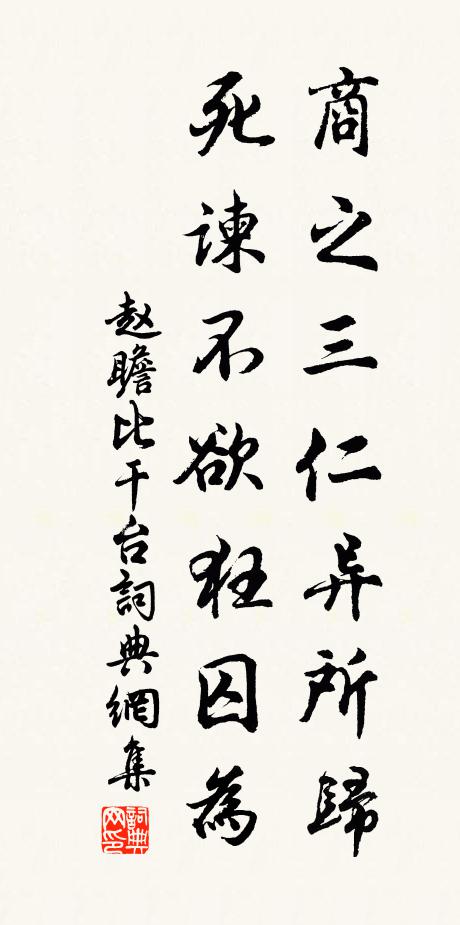 商之三仁异所歸
死諫不欲狂囚為
赵瞻比干台詞典網集
詞典网印